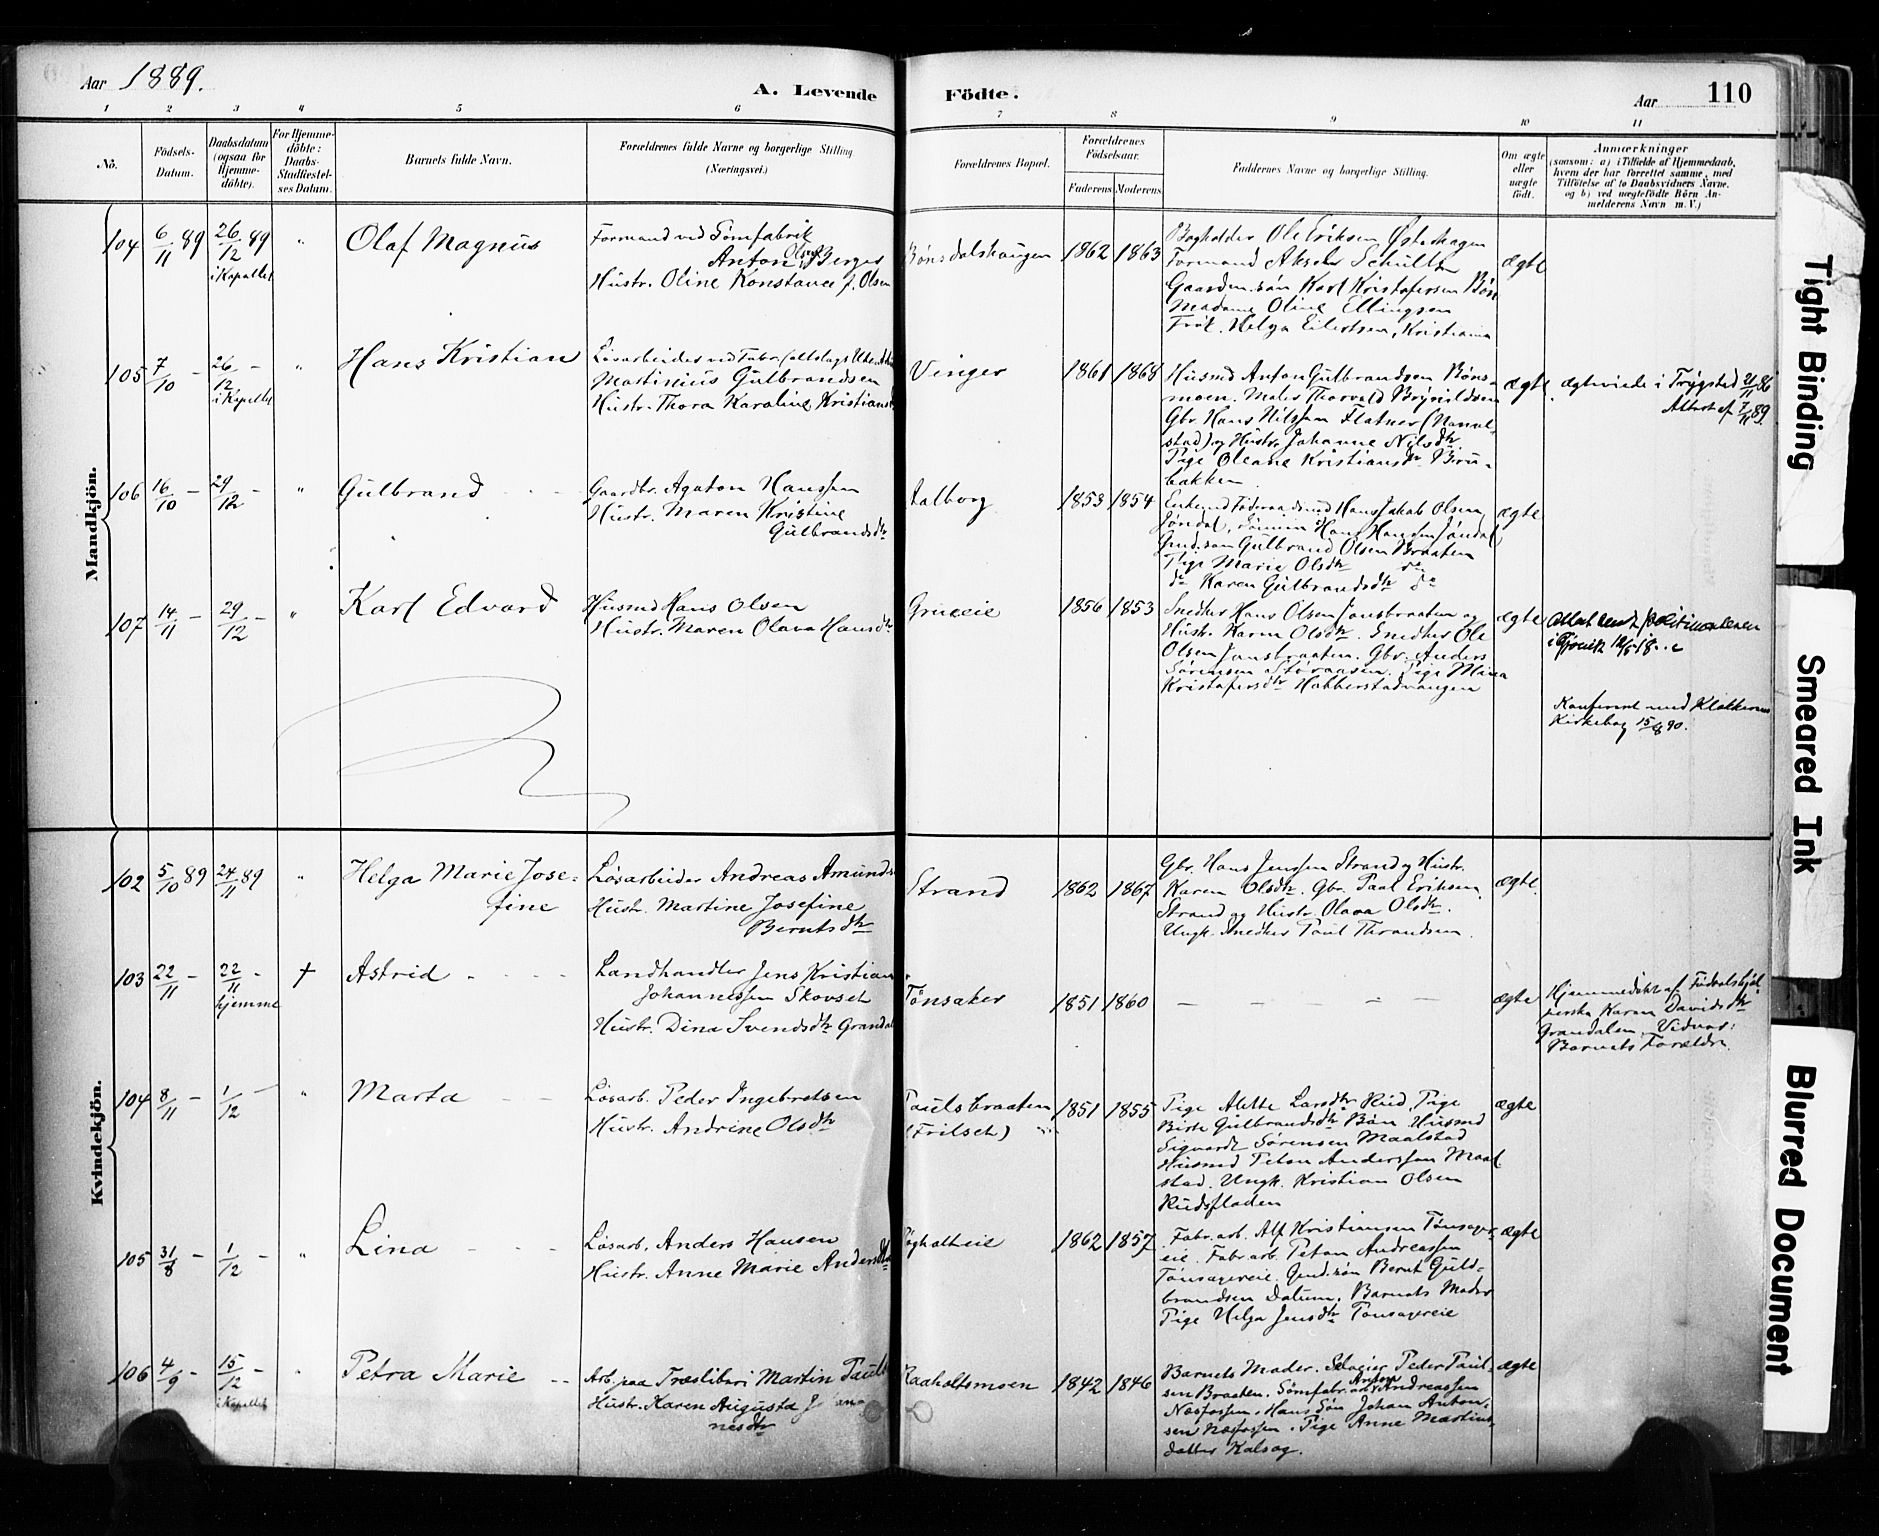 Aar 1889.
A. Levende
Födte.
Aar
110
1 2 3 4 5 6 7 8 9 10 11
No.
Födsels-
Datum.
Daabsdatum
(ogsaa for
Hjemme-
döbte).
For Hjemme-
döbte:
Daabs-
Stadfæstel-
ses Datum.
Barnets fulde Navn.
Forældrenes fulde Navne og borgerlige Stilling
(Næringsvei.)
Forældrenes Bopæl.
Forældrenes
Födselsaar.
Faderens Moderens
Faddernes Navne og borgerlige Stilling.
Om ægte
eller
uægte
födt.
Anmærkninger
(saasom: a) i Tilfælde af Hjemmedaab,
hvem der har forrettet samme, med
Tilföielse af to Daabsvidners Navne.
og b) ved uægtefödte Börn An-
melderens Navn m. V.)
Mandkjön.
104 6/11 89 26/12 89 i Kapellet " Olaf Magnus
Formand ved Tømfabrik
Anton Olsen Berger
Hustr. Oline Konstance f. Olsen
Bønsdalshaugen 1862 1863
Bogholder Ole Eriksen Østeshagen
Formand Aksel Schultz
Gaardm.søn Karl Kristofersen Bøn
Madame Oline Ellingsen
Frøk. Helga Eilertsen, Kristiania
ægte
105 7/10 - 26/12 - i Kapellet " Hans Kristian
Løsarbeider ved
Martinius Gulbrandsen
Hustr. Thora Karoline Kristians
Vinger 1861 1868
Husmd Anton Gulbrandsen Bøns-
moen. Maler Thorvald Brynildsen
Gbr. Hans Nilssen Flatner (Nannes-
stad) og Hustr. Johanne Nilsdtr.
Pige Oleane Kristiansdtr Biru-
bakken
ægte
ægteviede i Trygstad 21/11 86
Attest af 7/11 89.
106 16/10 - 29/12 - " Gulbrand
Gaardbr. Agaton Hanssen
Hustr. Maren Kristine
Gulbrandsdtr
Aalborg 1853 1854
Enkemd Føderaadsmd Hans Jakob Olsen
Jøndal, Sønnen Hans Hansen Jøndal
Gmd.søn Gulbrand Olsen Braaten
Pige Marie Olsdtr do
do Karen Gulbrandsdtr do
ægte
107 14/11 - 29/12 - " Karl Edvard
Husmd Hans Olsen
Hustr. Maren Olava Hansdtr
Grueeie 1856 1853
Snedker Hans Olsen Jonsbraaten og
Hustr. Karen Olsdtr. Snedker Ole
Olsen Jonsbraaten. Gbr. Anders
Sørensen Støraasen. Pige Mina
Kristofersdtr Habberstadvangen
ægte
Attest sendt politimesteren
i Gjøvik
Konfereret med Klokkerens
Kirkebog 15/8 90.
Kvindekjön.
102 5/10 89 24/11 89 " Helga Marie Jose-
fine
Løsarbeider Andreas Amunds
Hustr. Martine Josefine
Berntsdtr
Strand 1862 1867
Gbr. Hans Jenssen Strand og Hustr.
Karen Olsdtr. Gbr. Paal Eriksen
Strand og Hustr. Olava Olsdtr.
Ungk. Snedker Paul Thrandsen.
ægte
103 22/11 - 22/11 - hjemme † Astrid
Landhandler Jens Kristian
Johannessen Skovset
Hustr. Dina Svendsdtr Grandal
Tønsaker 1851 1860
ægte
Hjemmedøbt af Fødselshjæl
perske Karen Davidsdtr
Grandalen. Vidner:
Barnets Forældre.
104 8/11 1/12 - " Marta
Løsarb. Peder Ingebretsen
Hustr. Andrine Olsdtr
Paulsbraaten
(Frilset) 1851 1855
Pige Alette Larsdtr Rud. Pige
Birte Gulbrandsdtr Bøn. Husmd
Sigvardt Sørensen Maalstad
Husmd Peter Anderssen Maal
stad. Ungk. Kristian Olsen
Rudsfladen
ægte
105 31/8 - 1/12 - " Lina
Løsarb. Anders Hansen
Hustr. Anne Marie Andersdtr
1862 1857
Fabr.arb. Alf Kristiansen Tønsager-
eie. Fabr.arb. Peter Andreassen
Tønsagereie. Gmd.søn Bernt Guld-
brandsen Dalum. Barnets Moder
Pige Helga Jensdtr Tønsagereie
ægte
106 4/9 - 15/12 - i Kapellet " Petra Marie
Arb. paa Træsliberi Martin Pauls
Hustr. Karen Augusta Johan
nesdtr
Raaholtsmoen 1842 1846
Barnets Moder. Selveier Peder Paul-
sen Braaten. Sømfabr.arb. Anton Andreassen
Næsfossen. Hans Søn Johan Anton-
sen Næsfossen. Pige Anne Martins-
datter Kalsog.
ægte
Tight Binding
Smeared Ink
Blurred Document